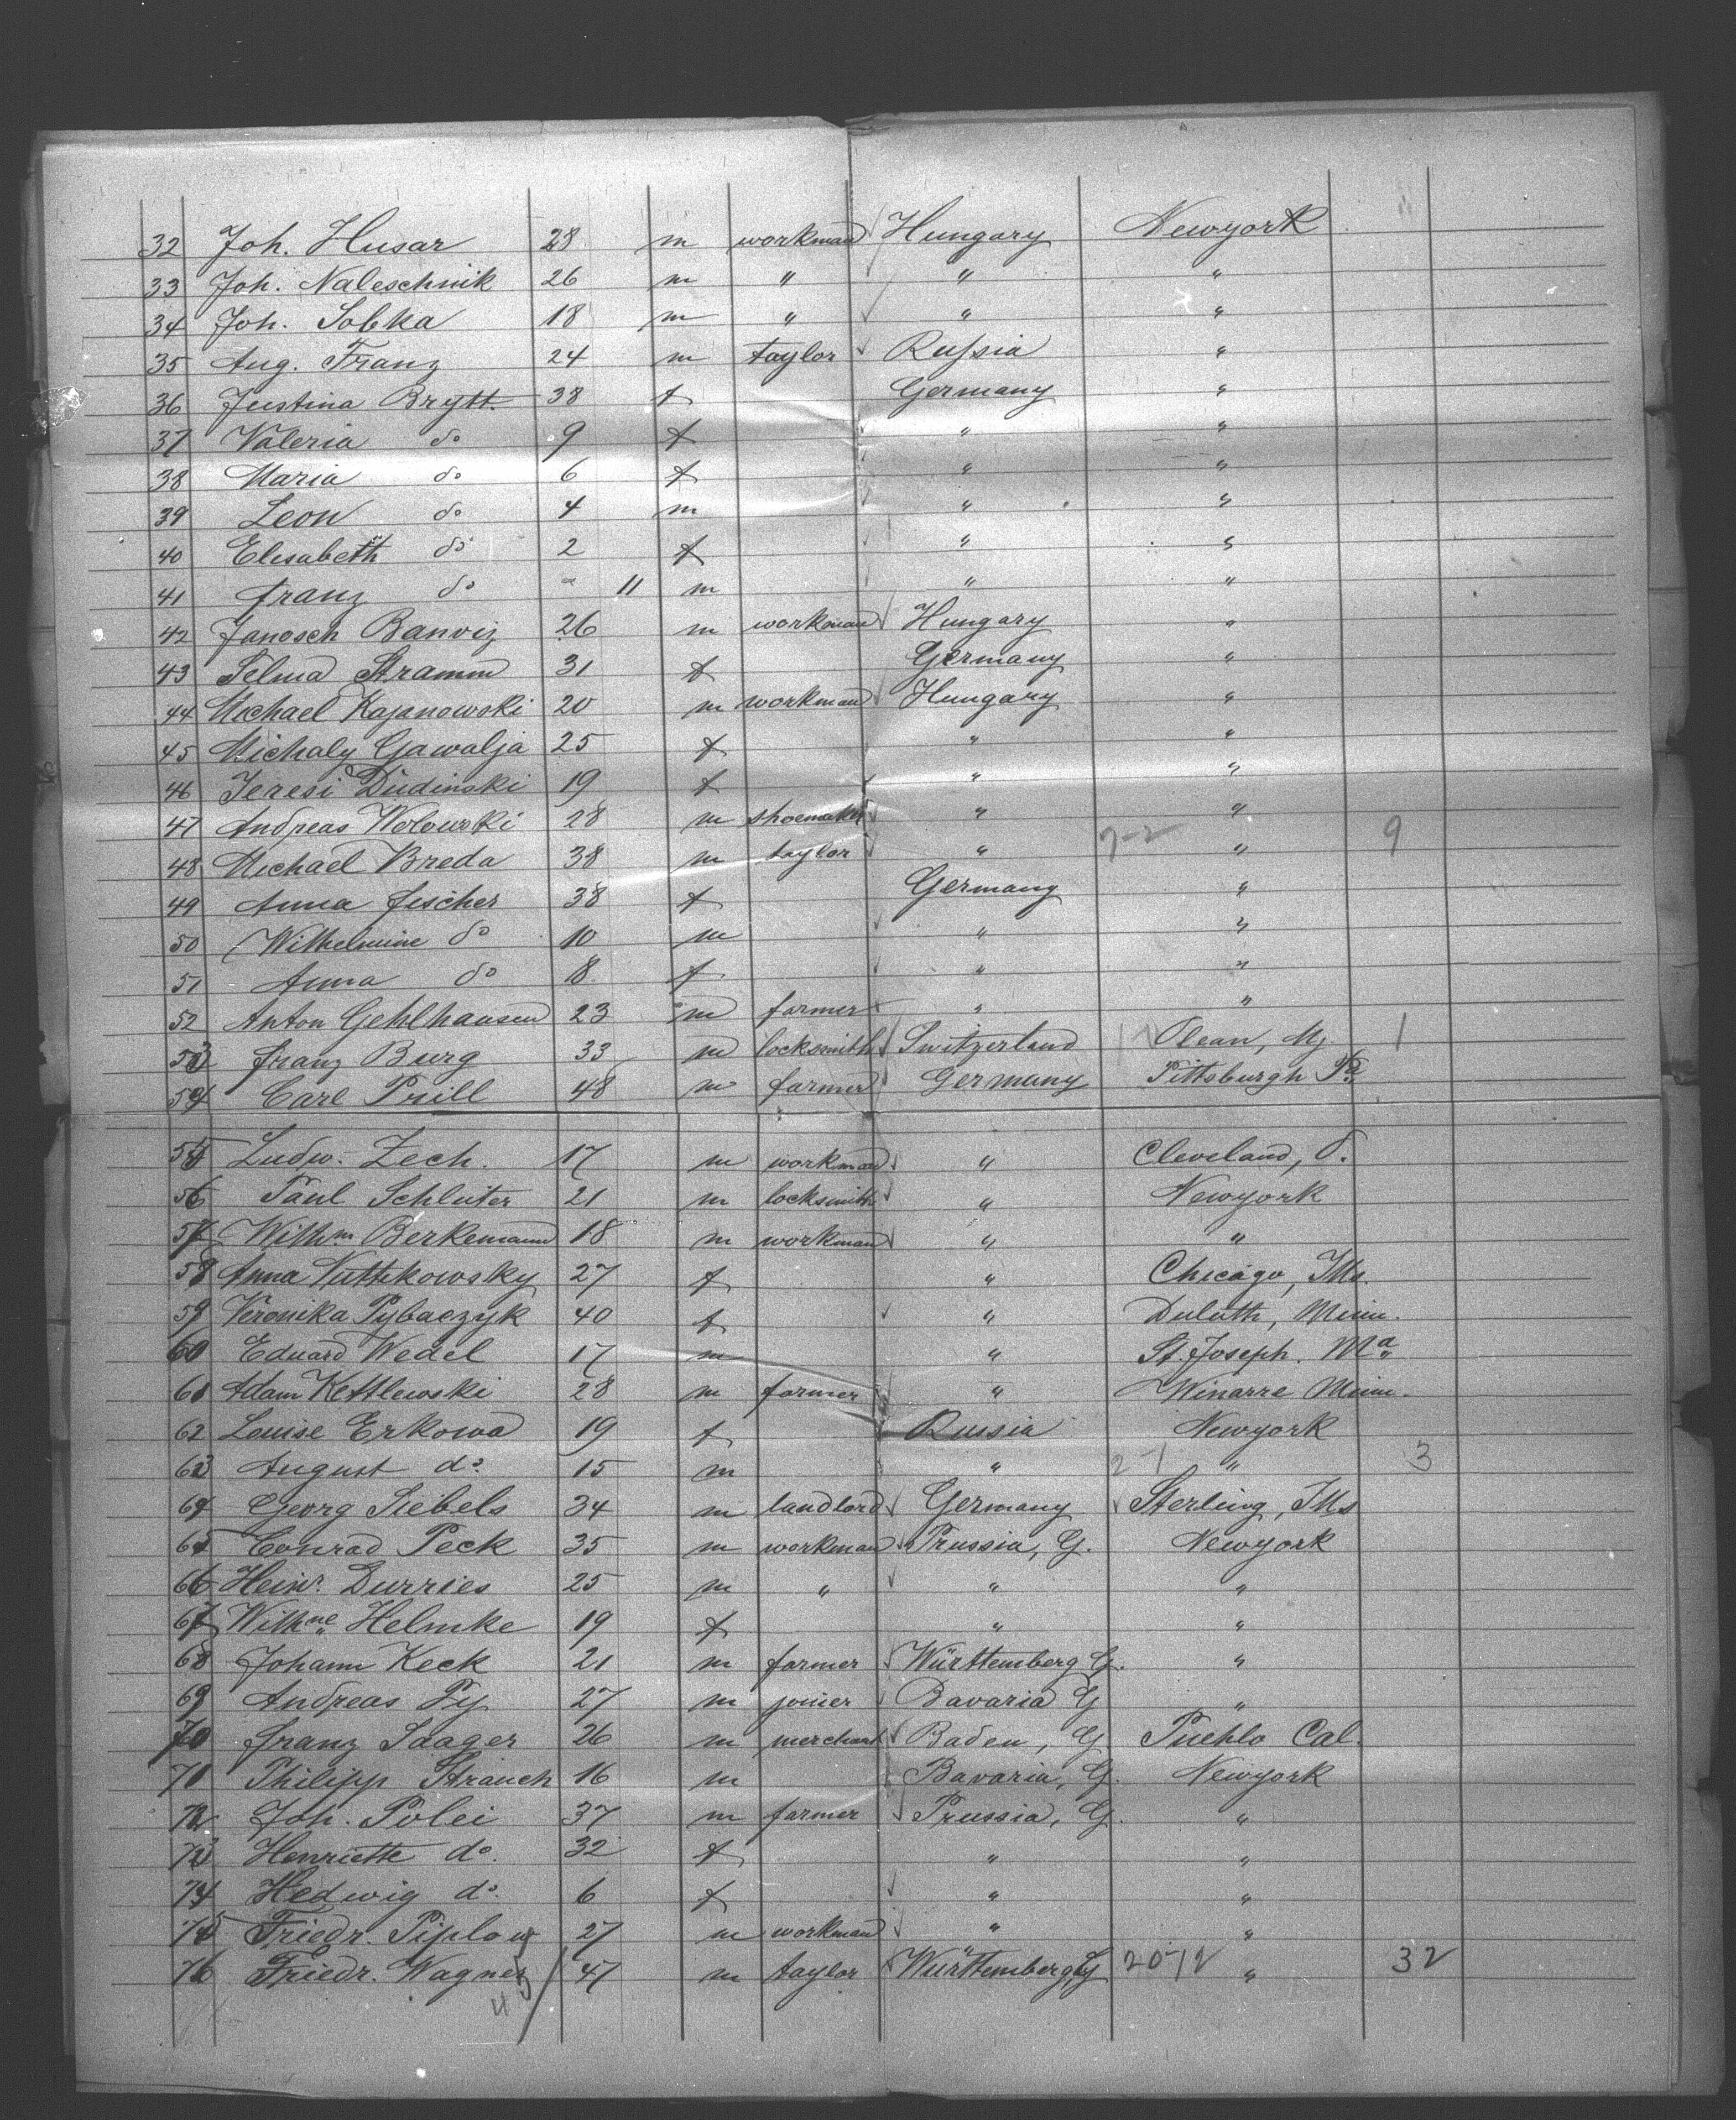 32 Joh. Husar 28 m workman Hungary Newyork
33 Joh. Naleschnik 26 m " " "
34 Joh. Sobka 18 m " " "
35 Aug. Franz 24 m taylor Russia "
36 Justina Brytt. 38 f Germany "
37 Valeria do 9 f " "
38 Maria do 6 f " "
39 Leon do 4 m " "
40 Elisabeth do 2 f " "
41 Franz do - 11 m " "
42 Janosch Banviz 26 m workman Hungary "
43 Selma Stramm 31 f Germany "
44 Michael Kajanowski 20 m workman Hungary "
45 Michaly Gawalja 25 f " "
46 Teresi Dudinski 19 f " "
47 Andreas Wolowski 28 m shoemaker " "
48 Michael Breda 38 m taylor " 7-2 " 9
49 Anna Fischer 38 f Germany "
50 Wilhelmine do 10 m " "
51 Anna do 8 f " "
52 Anton Gehlhausen 23 m farmer " "
53 Franz Burg 33 m locksmith Switzerland Olean, 1
54 Carl Prill 48 m farmer Germany Pittsburgh Pa
55 Ludw. Zech. 17 m workman " Cleveland, O.
56 Paul Schluter 21 m locksmith " Newyork
57 Wilhm Berkemann 18 m workman " "
58 Anna Vuttkowsky 27 f " Chicago, Ills.
59 Veronika Pybaczyk 40 f " Duluth, Minn.
60 Eduard Wedel 17 m " St. Joseph. Ma
61 Adam Kettlewski 28 m farmer " Winarre Minn.
62 Louise Erkowa 19 f Russia Newyork
63 August do. 15 m " 2-1 " 3
64 Georg Siebels 34 m landlord Germany Sterling, Ills
65 Conrad Peck 35 m workman Prussia, G. Newyork
66 Heinr. Durries 25 m " " "
67 Wilhne Helmke 19 f " "
68 Johann Keck 21 m farmer Württemberg G. "
69 Andreas Py 27 m joiner Bavaria G "
70 Franz Saager 26 m merchant Baden, G Pueblo Cal.
71 Philipp Strauch 16 m Bavaria, G. Newyork
72 Joh. Polei 37 m farmer Prussia, G. "
73 Henriette do. 32 f " "
74 Hedwig do. 6 f " "
75 Friedr. Piplow 27 m workman " "
76 Friedr. Wagner 47 m taylor Württemberg, G 20-12 " 32
45